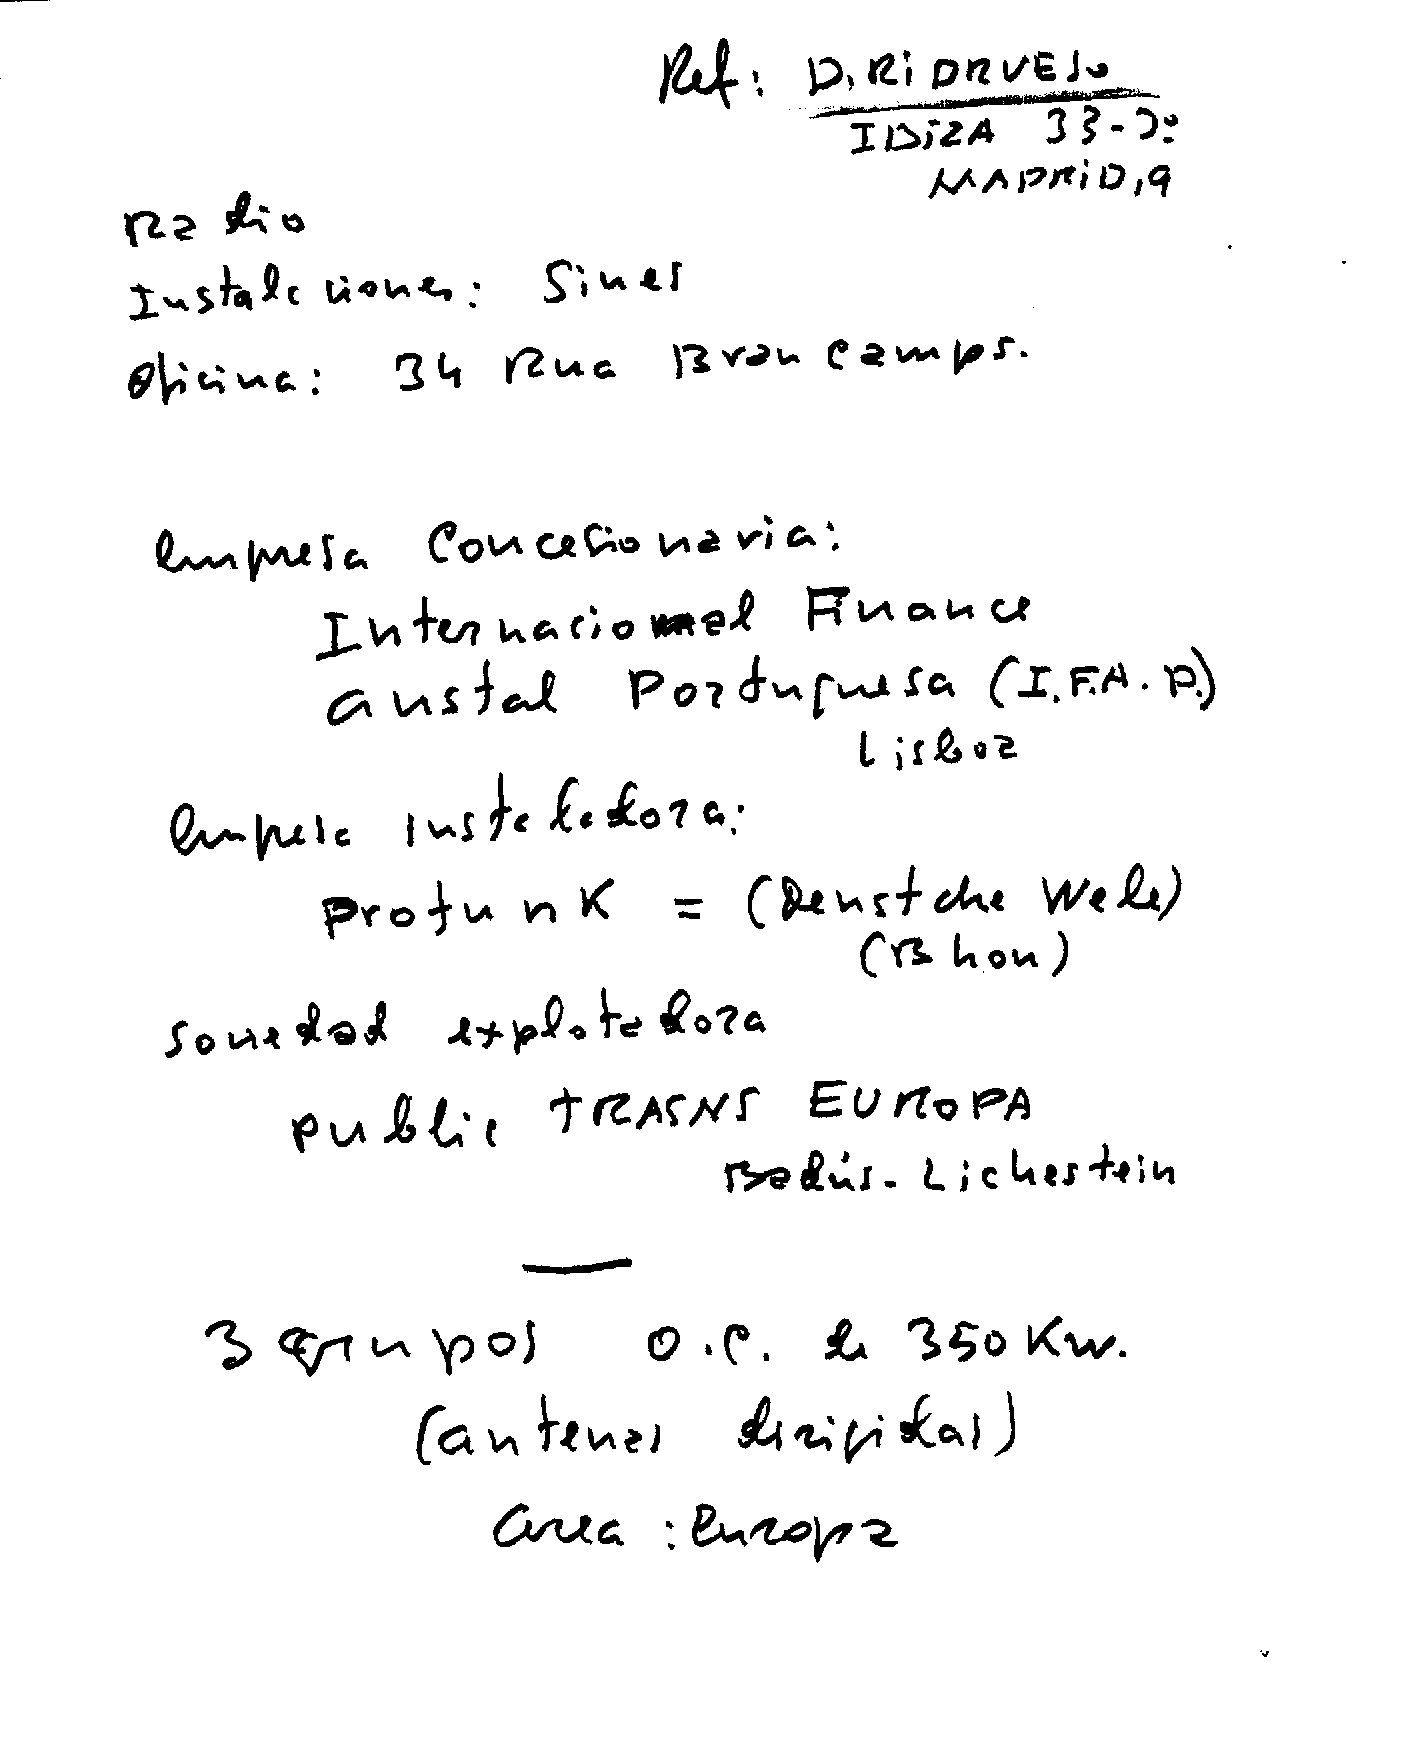 Ref: D. RiDRUEJo
IBiZA 33-7º
MADRiD, 9
Radio
Instalciones: Sines
Oficina: 34 Rua Brancamps.
Empresa Concesionaria:
Internacional Finance
austal Portuguesa (I.F.A.P.)
Lisboa
Empresa instaladora:
Profunk = (Deustche Wele)
(Bhon)
sociedad explotadora
public TRASNS EUROPA
Badús - Lichestein
3 grupos O.C. de 350 Kw.
(antenas dirigidas)
area : Europa